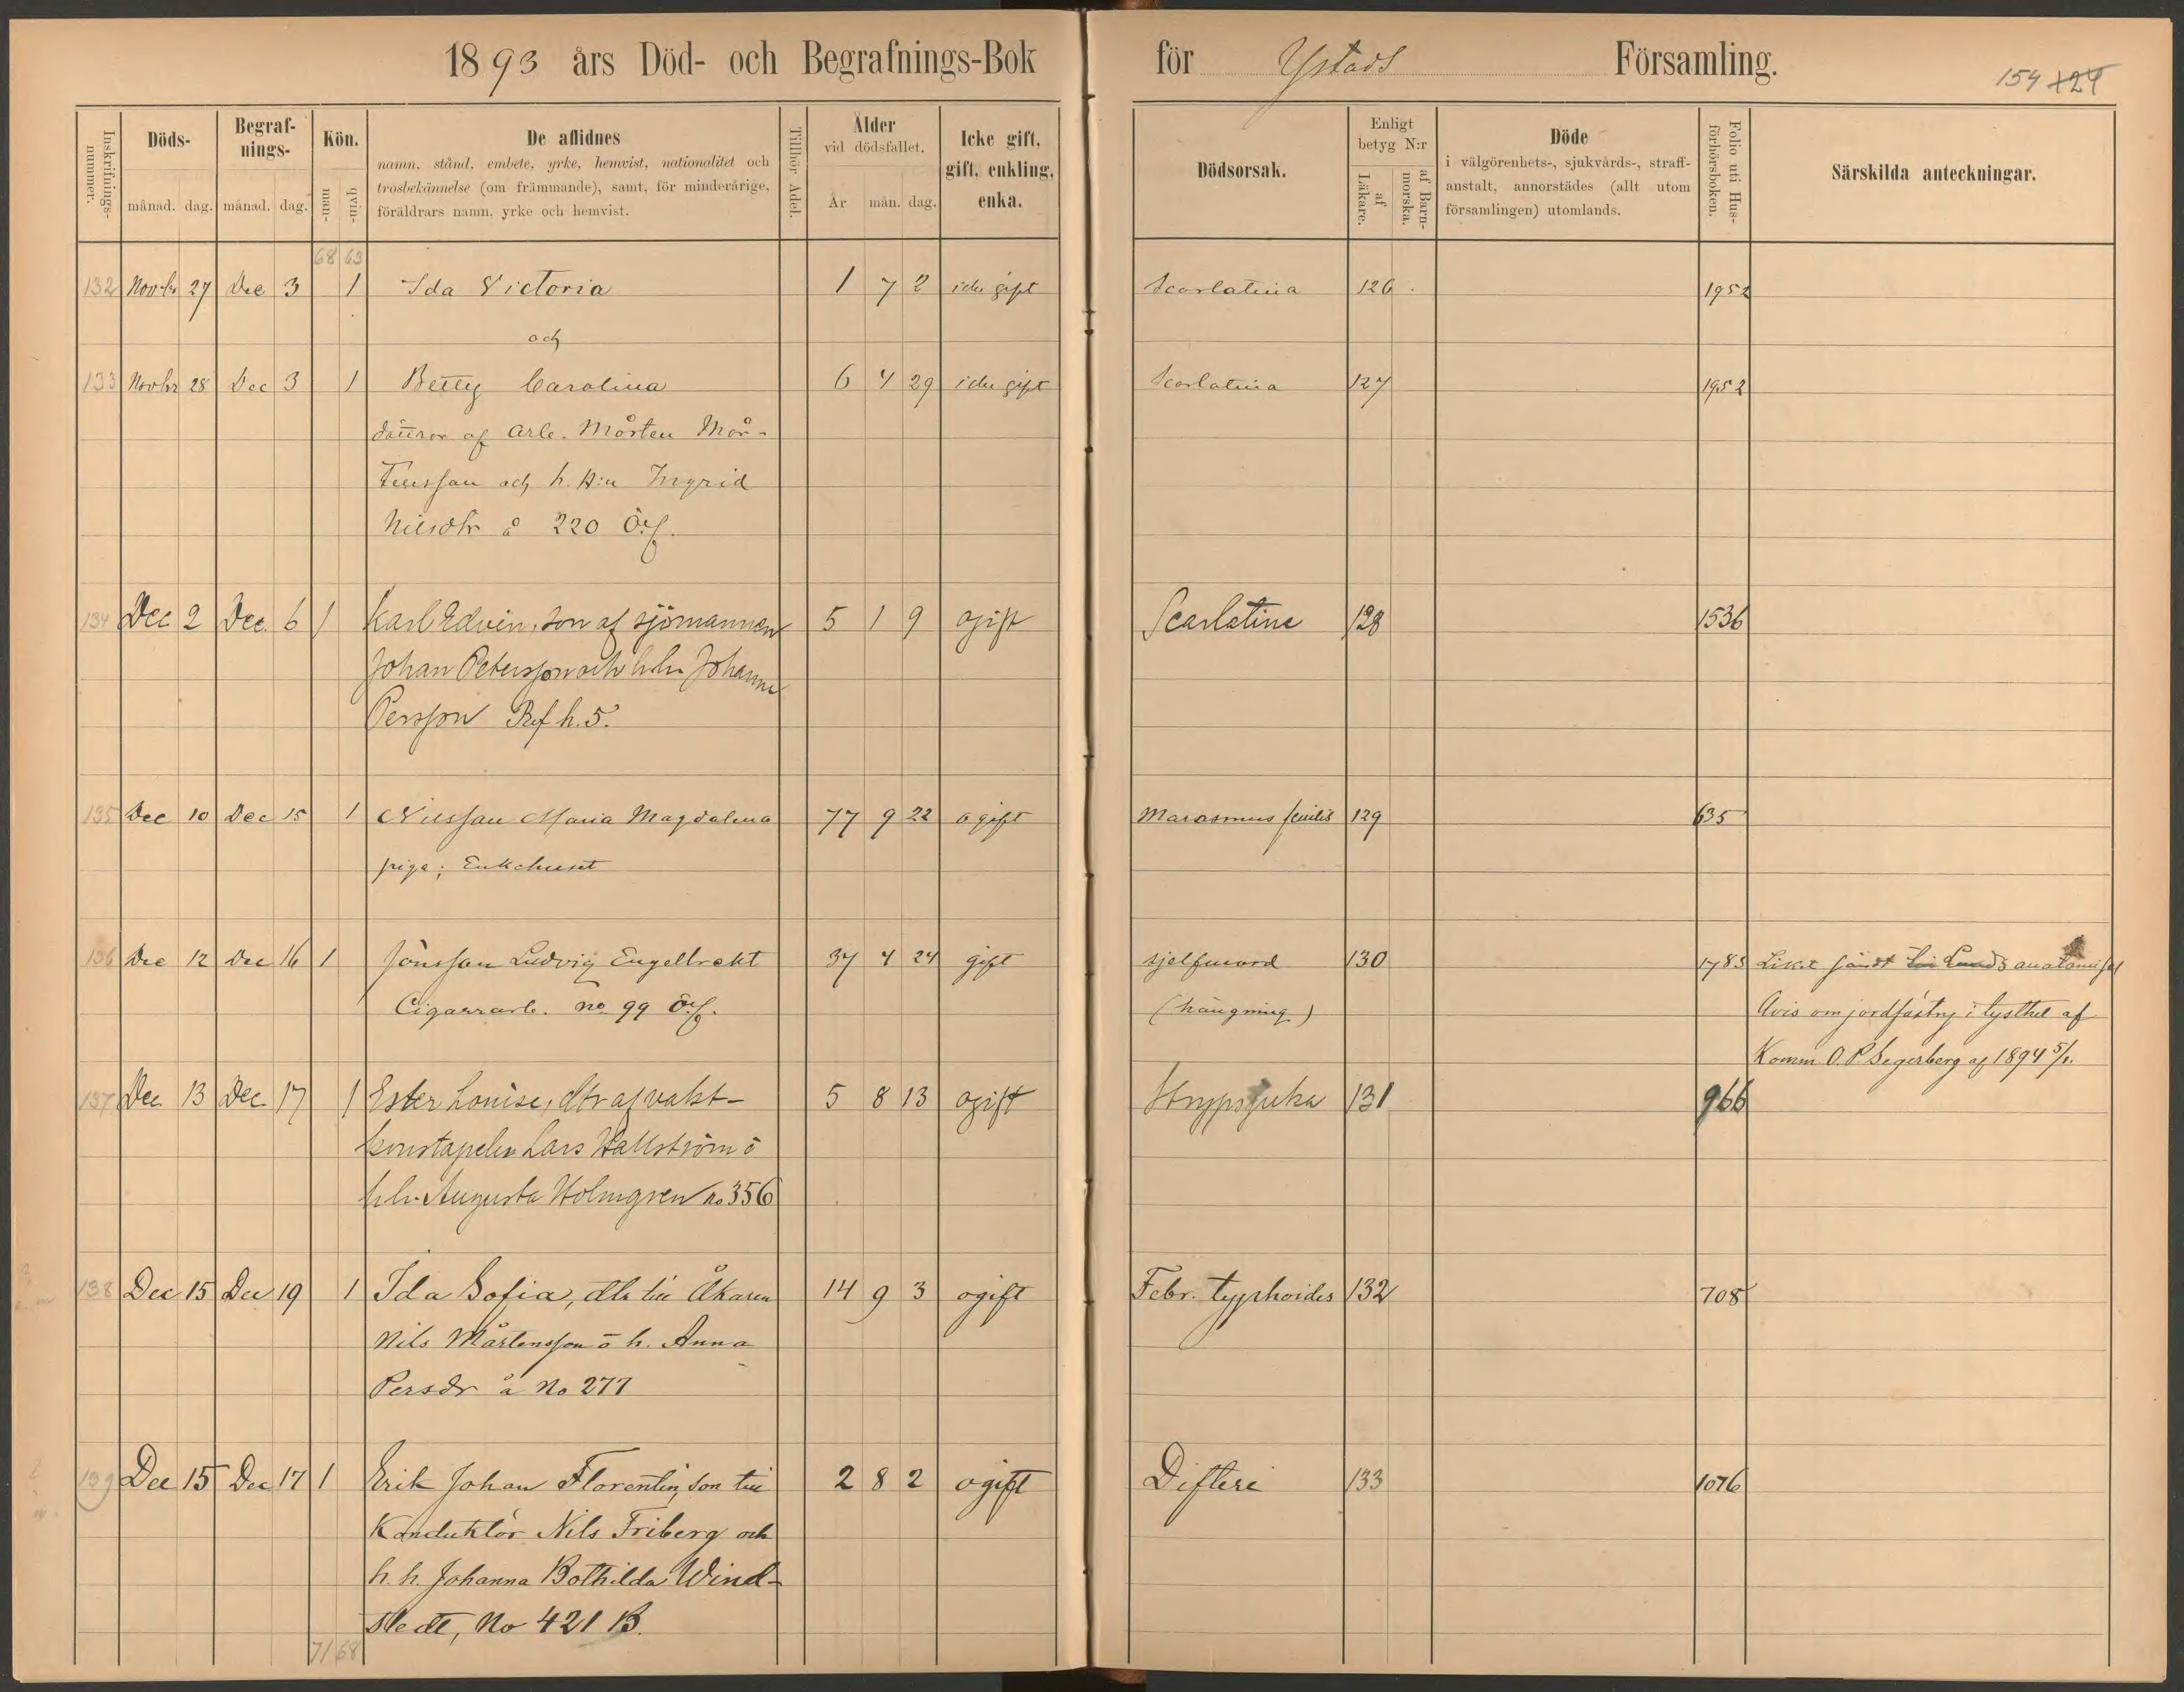 1893 års Död- och Begrafnings-Bok för Ystads Församling.
154 124
Inskrifnings-nummer.
Döds-
månad. dag.
Begraf-nings-
månad. dag.
Kön.
man- qvin-
De aflidnes
namn, stånd, embete, yrke, hemvist, nationalitet och
trosbekännelse (om främmande), samt, för minderårige,
föräldrars namn, yrke och hemvist.
Tillhör Adel.
Ålder
vid dödsfallet.
År mån. dag.
Icke gift,
gift, enkling,
enka.
Dödsorsak.
Enligt
betyg N:r
af Läkare.
af Barn-morska.
Döde
i välgörenhets-, sjukvårds-, straff-
anstalt, annorstädes (allt utom
församlingen) utomlands.
Folio uti Hus-förhörsboken.
Särskilda anteckningar.
68 63
132 Novbr 27 Dec 3 1 Ida Victoria 1 7 2 icke gift Scarlatina 126 1952
och
133 Novbr 28 Dec 3 1 Betty Carolina 6 4 29 icke gift Scarlatina 127 1952
döttrar af arb. Mårten Mår-
tensson och h. H:u Ingrid
Nilsdtr å 220 Öf.
134 Dec 2 Dec. 6 1 Karl Edvin, son af sjömannen 5 1 9 ogift Scarlatina 128 1536
Johan Petersson och h.h. Johanna
Persson h. 5.
135 Dec 10 Dec 15 1 Nilsson Maria Magdalena 77 9 22 ogift Marasmus senilis 129 635
piga; Enkehuset
136 Dec 12 Dec 16 1 Jönsson Ludvig Engelbrekt 37 4 24 gift sjelfmord 130 1783 Liket sändt till Lunds anatomisal
Cigarrarb. no 99 Öf. (hängning) Avis om jordfästng i tysthet af
Komm O. P. Segerberg af 1894 5/1.
137 Dec. 13 Dec 17 1 Ester Louise, dtr af vakt- 5 8 13 ogift Strypsjuka 131 966
konstapeln Lars Hallström o
h.h. Augusta Holmgren no 356
138 Dec 15 Dec 19 1 Ida Sofia, dtr till Åkaren 14 9 3 ogift Febr. typhoides 132 708
Nils Mårtensson o h. Anna
Persdr å No 277
139 Dec 15 Dec 17 1 Erik Johan Florentin, son till 2 8 2 ogift Difteri 133 1076
Konduktör Nils Friberg och
h.h. Johanna Bothilda Wind-
stedt, No 421 B.
71 68